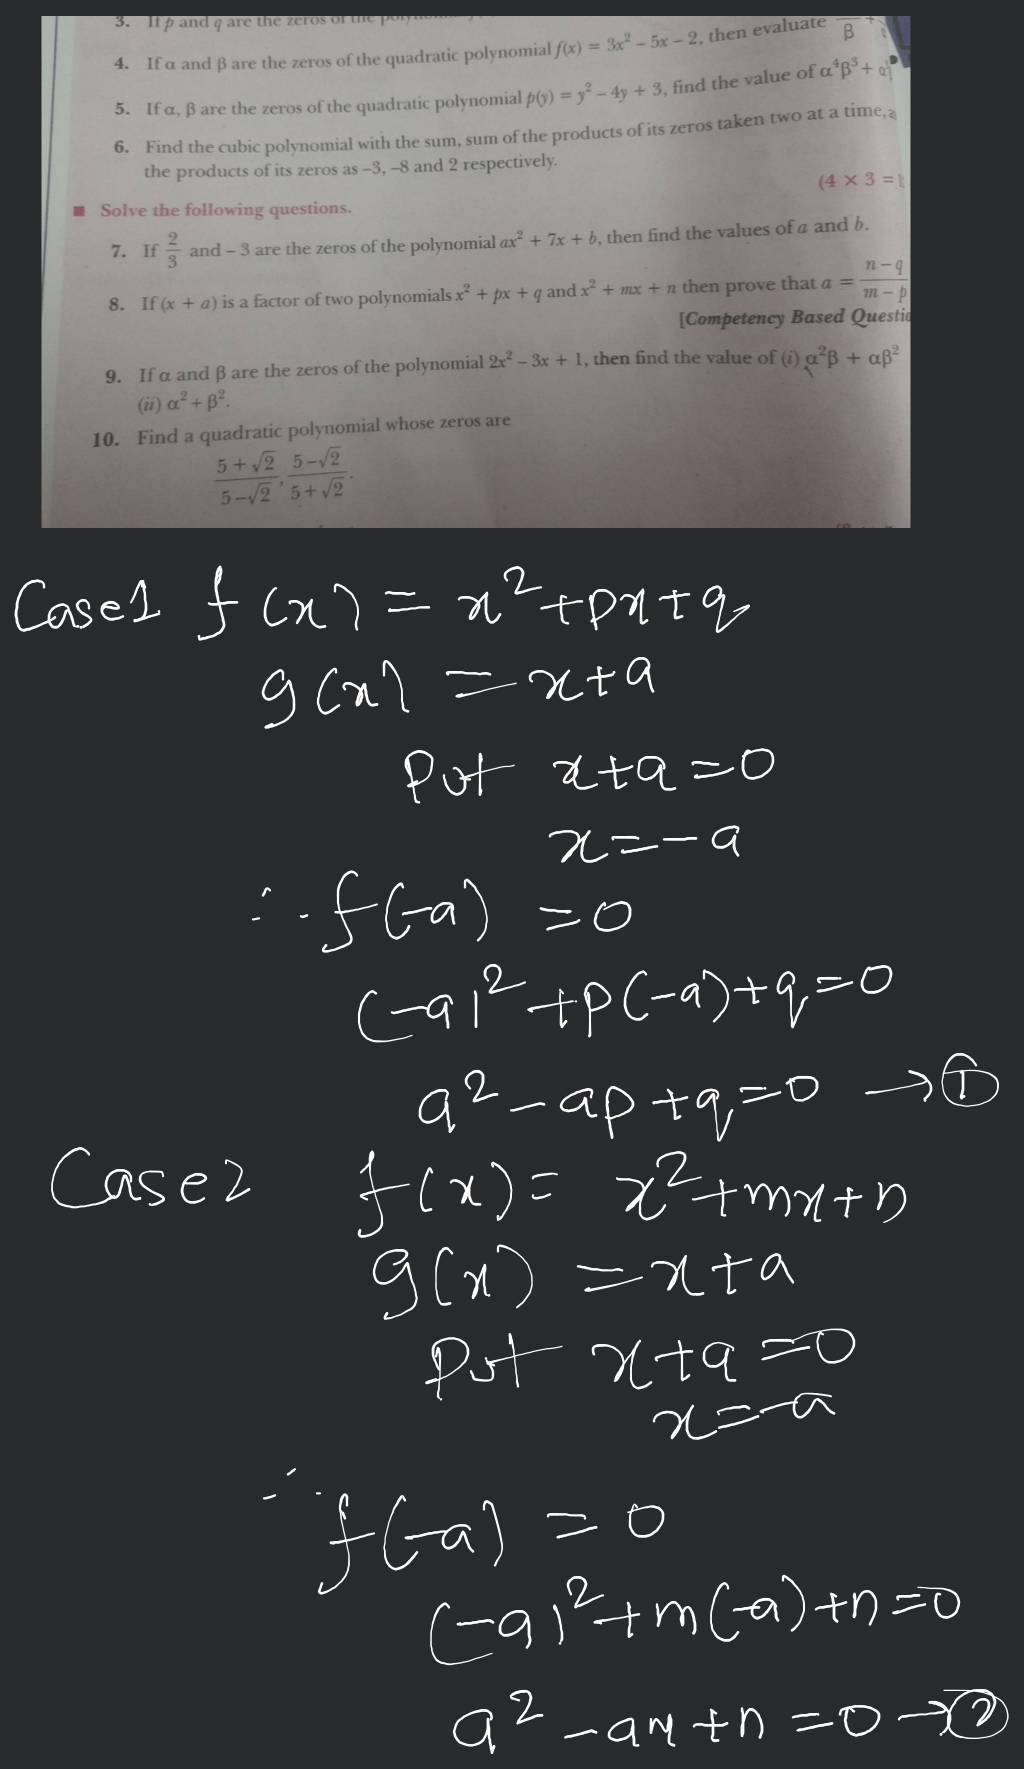 3. If p and q are the zeros of the
4. If α and β are the zeros of the quadratic polynomial f(x) = 3x² – 5x – 2, then evaluate
5. If α, β are the zeros of the quadratic polynomial p(y) = y² – 4y + 3, find the value of α⁴β³ +
6. Find the cubic polynomial with the sum, sum of the products of its zeros taken two at a time,
the products of its zeros as –3, –8 and 2 respectively.
(4 × 3 =
■ Solve the following questions.
7. If 2/3 and – 3 are the zeros of the polynomial ax² + 7x + b, then find the values of a and b.
8. If (x + a) is a factor of two polynomials x² + px + q and x² + mx + n then prove that a = (n – q)/(m – p)
[Competency Based
9. If α and β are the zeros of the polynomial 2x² – 3x + 1, then find the value of (i) α²β + αβ²
(ii) α² + β².
10. Find a quadratic polynomial whose zeros are
(5 + √2)/(5 – √2), (5 – √2)/(5 + √2).
Case1 f(x) = x² + px + q
g(x) = x + a
Put x + a = 0
x = -a
∴ f(-a) = 0
(-a)² + p(-a) + q = 0
a² - ap + q = 0 → ①
Case2 f(x) = x² + mx + n
g(x) = x + a
Put x + a = 0
x = -a
∴ f(-a) = 0
(-a)² + m(-a) + n = 0
a² - am + n = 0 → ②